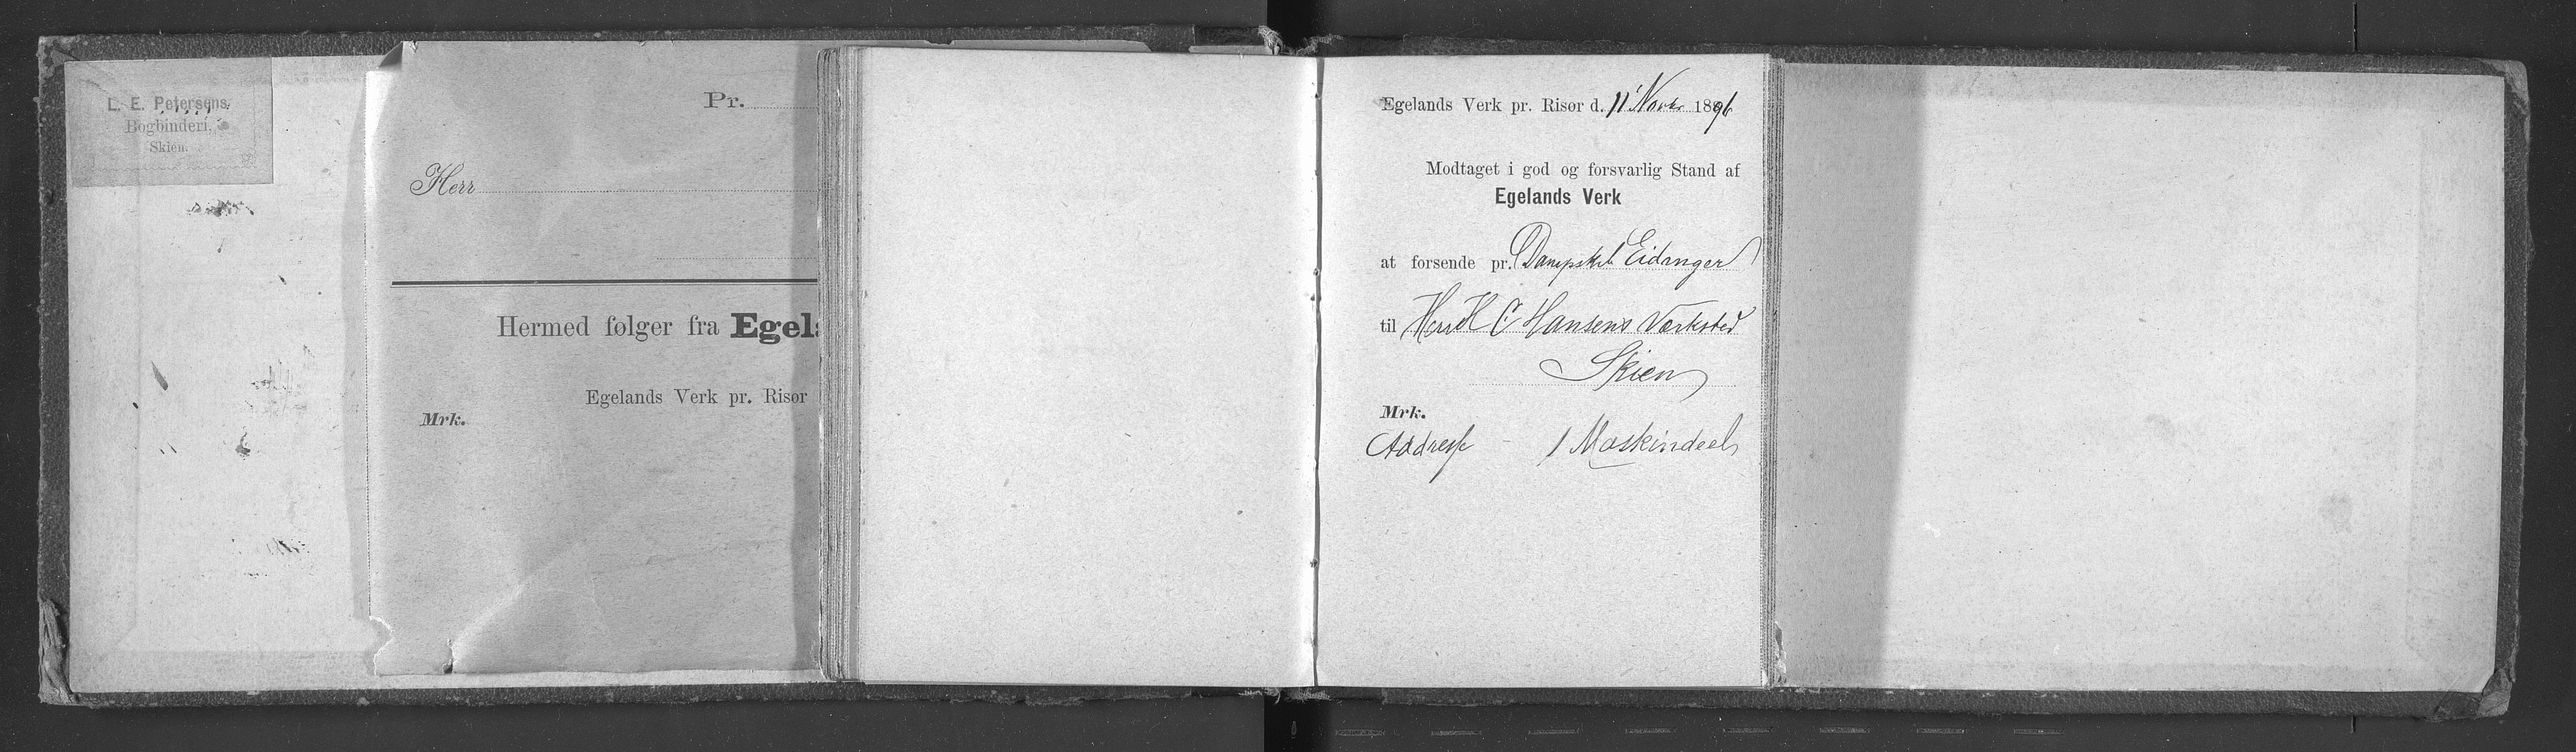 L. E. Petersens
Bogbinderi,
Skien.
Pr.
Herr
Hermed følger fra Egela
Egelands Verk pr. Risør
Mrk.
Egelands Verk pr. Risør d. 11' Novbr 1896
Modtaget i god og forsvarlig Stand af
Egelands Verk
at forsende pr. Dampskib Eidanger
til Herr H C Hansens Værksted
Skien
Mrk.
Addresse - 1 Maskindeel